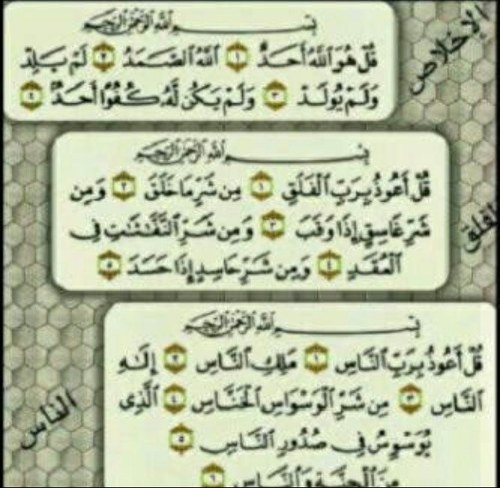 الإخلاص
بِسْمِ اللَّهِ الرَّحْمَٰنِ الرَّحِيمِ
قُلْ هُوَ ٱللَّهُ أَحَدٌ ١ ٱللَّهُ ٱلصَّمَدُ ٢ لَمْ يَلِدْ
وَلَمْ يُولَدْ ٣ وَلَمْ يَكُن لَّهُۥ كُفُوًا أَحَدٌۢ ٤
الفلق
بِسْمِ اللَّهِ الرَّحْمَٰنِ الرَّحِيمِ
قُلْ أَعُوذُ بِرَبِّ ٱلْفَلَقِ ١ مِن شَرِّ مَا خَلَقَ ٢ وَمِن
شَرِّ غَاسِقٍ إِذَا وَقَبَ ٣ وَمِن شَرِّ ٱلنَّفَّٰثَٰتِ فِى
ٱلْعُقَدِ ٤ وَمِن شَرِّ حَاسِدٍ إِذَا حَسَدَ ٥
الناس
بِسْمِ اللَّهِ الرَّحْمَٰنِ الرَّحِيمِ
قُلْ أَعُوذُ بِرَبِّ ٱلنَّاسِ ١ مَلِكِ ٱلنَّاسِ ٢ إِلَٰهِ
ٱلنَّاسِ ٣ مِن شَرِّ ٱلْوَسْوَاسِ ٱلْخَنَّاسِ ٤ ٱلَّذِى
يُوَسْوِسُ فِى صُدُورِ ٱلنَّاسِ ٥
مِنَ ٱلْجِنَّةِ وَٱلنَّاسِ ٦